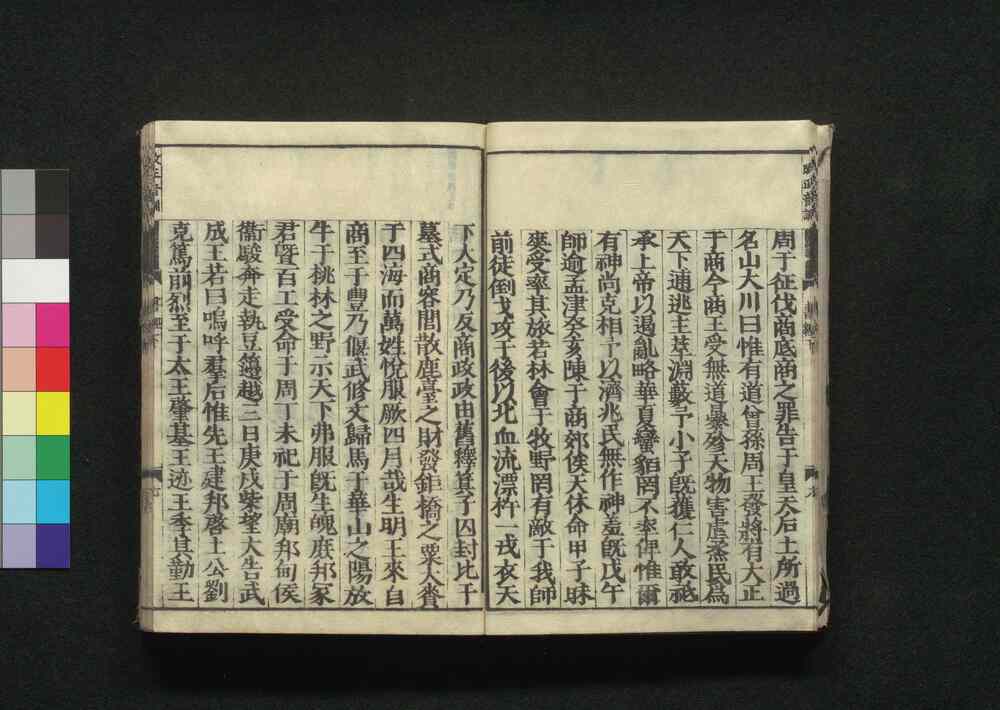 周于征伐商底商之罪告于皇天后土所過
名山大川曰惟有道曾孫周王發將有大正
于商今商王受無道暴殄天物害虐烝民爲
天下逋逃主萃淵藪予小子既獲仁人敢祗
承上帝以遏亂略華夏蠻貊罔不率俾惟爾
有神尚克相予以濟兆民無作神羞既戊午
師逾孟津癸亥陳于商郊俟天休命甲子昧
爽受率其旅若林會于牧野罔有敵于我師
前徒倒戈攻于後以北血流漂杵一戎衣天
下大定乃反商政政由舊釋箕子囚封比干
墓式商容閭散鹿臺之財發鉅橋之粟大賚
于四海而萬姓悅服厥四月哉生明王來自
商至于豐乃偃武修文歸馬于華山之陽放
牛于桃林之野示天下弗服既生魄庶邦冢
君曁百工受命于周丁未祀于周廟邦甸侯
衞駿奔走執豆籩越三日庚戌柴望大告武
成王若曰嗚呼羣后惟先王建邦啓土公劉
克篤前烈至于太王肇基王迹王季其勤王